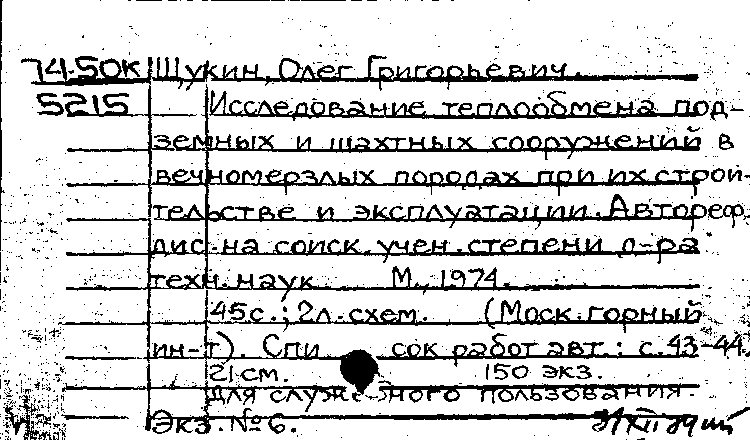 74-50К Щукин, Олег Григорьевич.
5215 Исследование теплообмена под-
земных и шахтных сооружений в
вечномерзлых породах при их строи-
тельстве и эксплуатации. Автореф.
дис. на соиск. учен. степени д-ра
техн. наук М., 1974.
45с.; 2л. схем. (Моск. горный
ин-т). Список работ авт.: с. 43-44.
21 см. 150 экз.
Для служебного пользования.
Экз. №6.